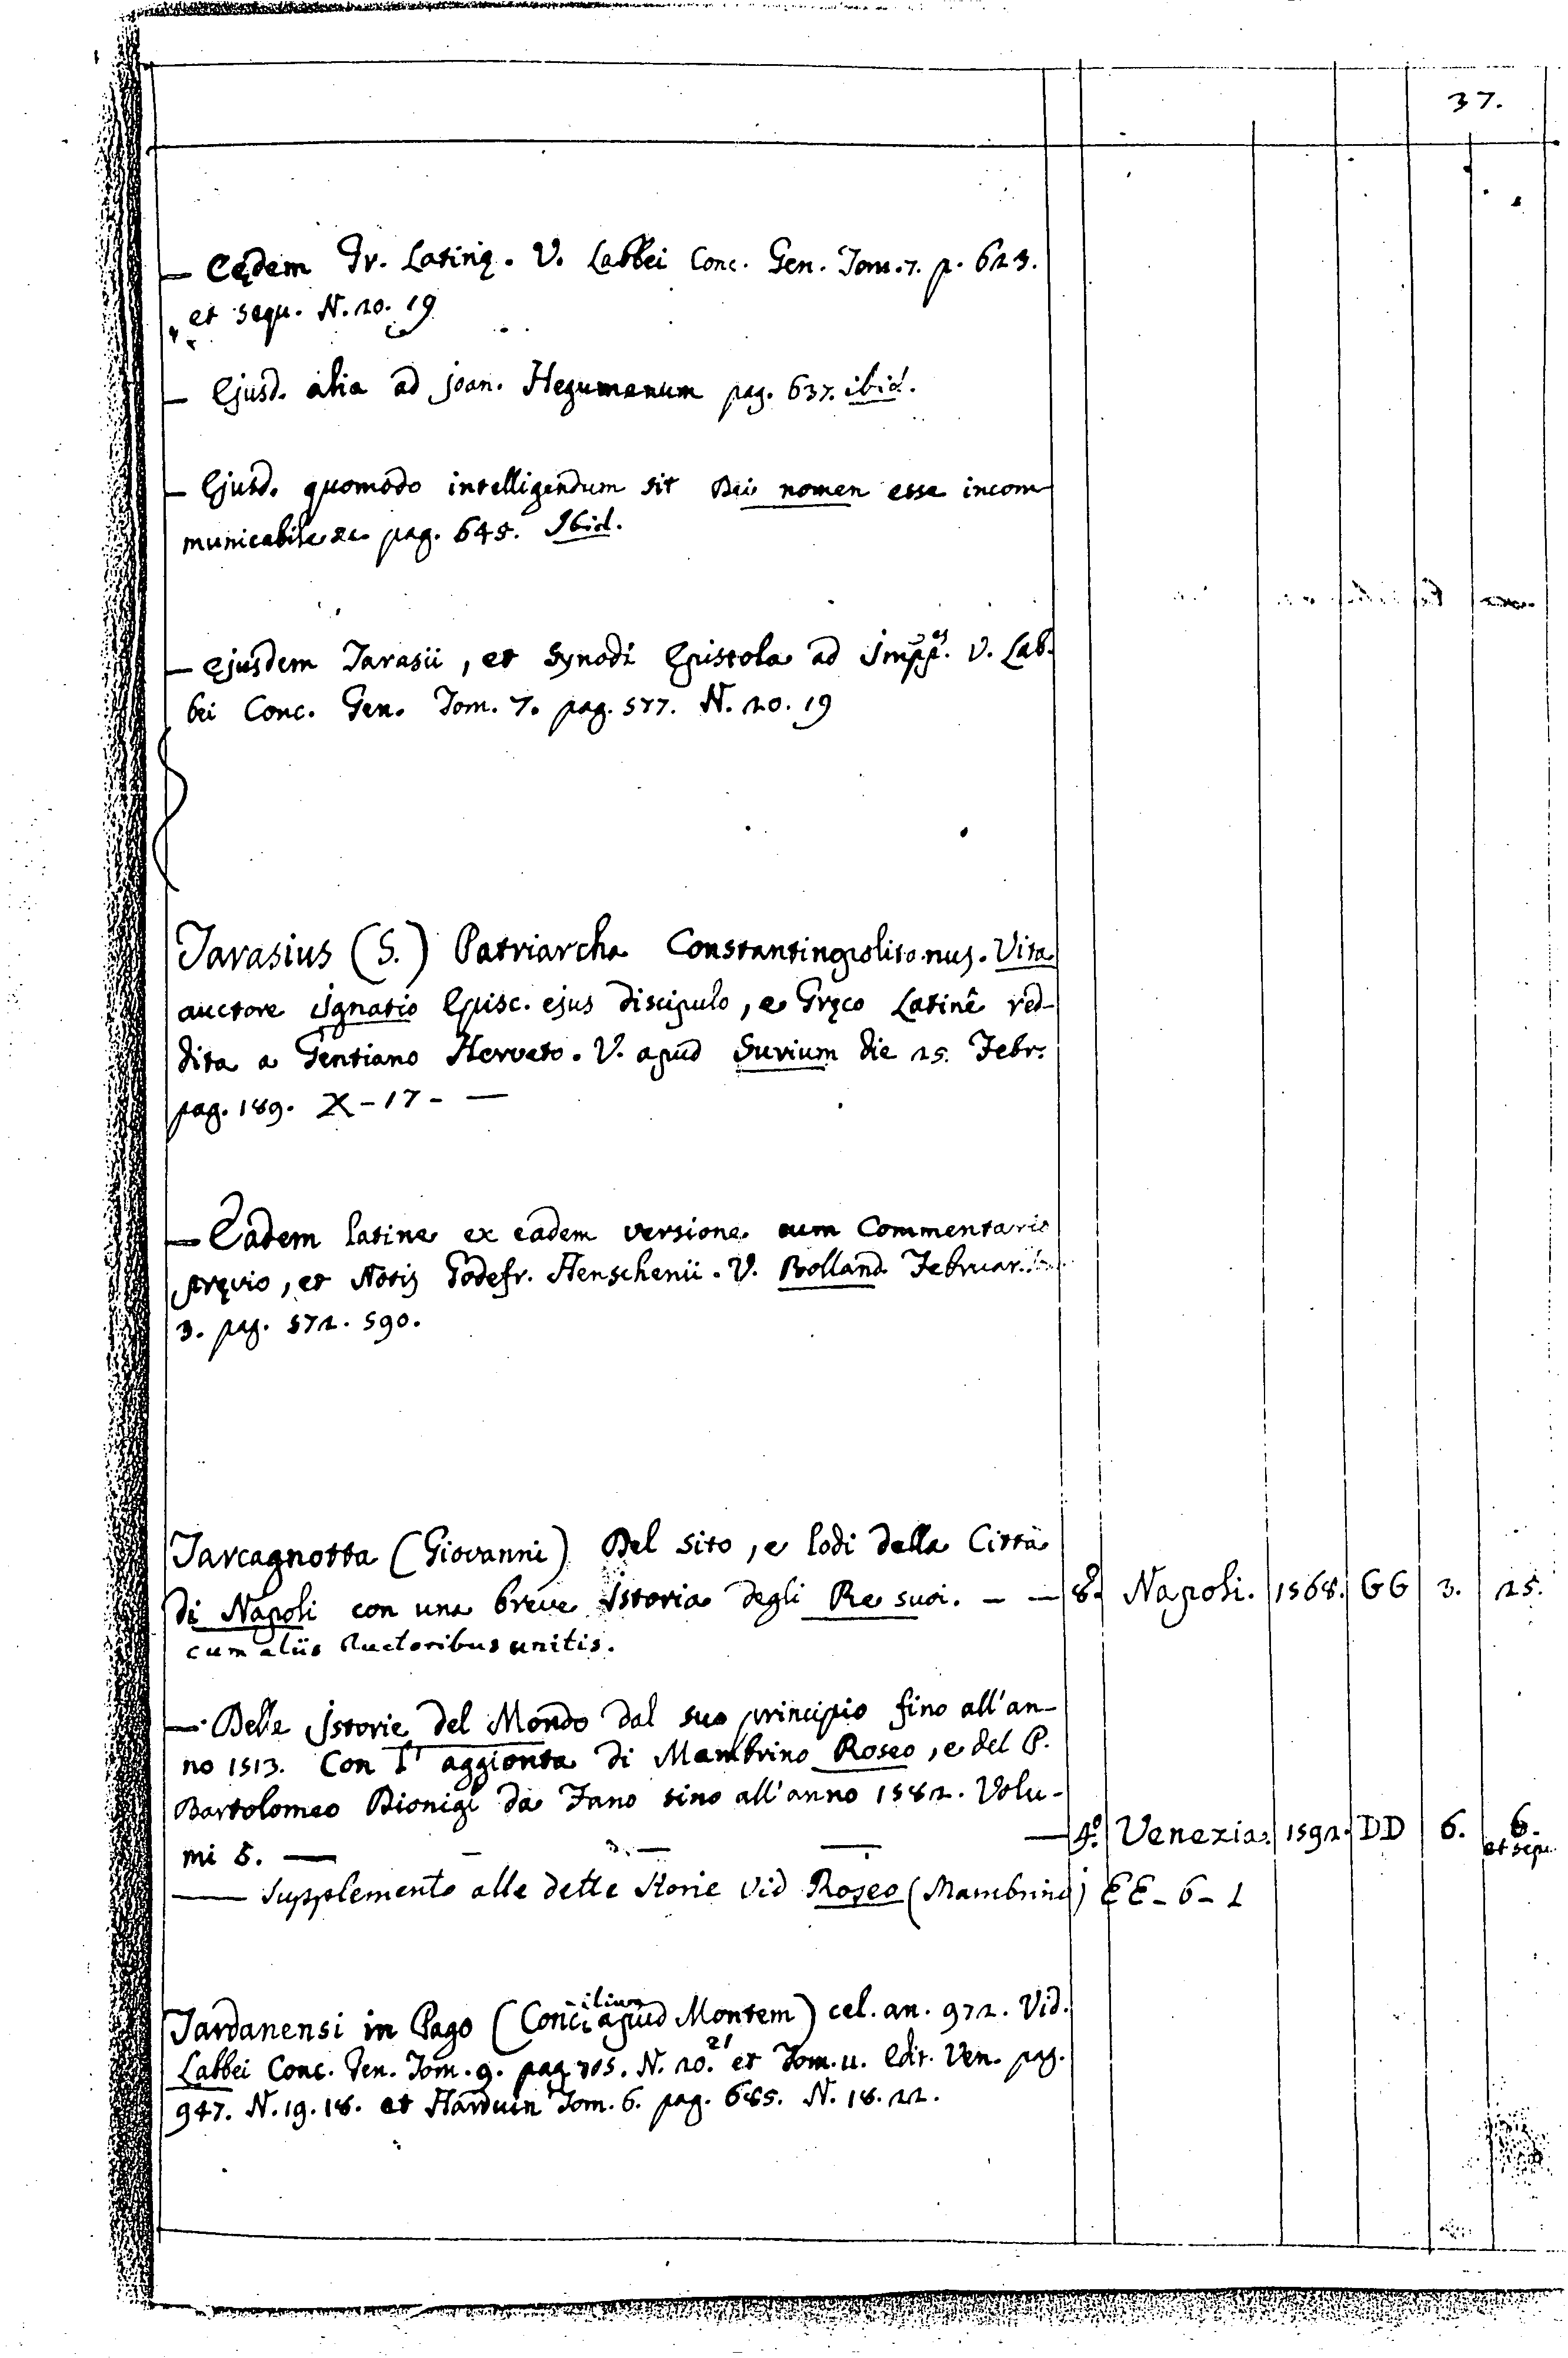 37.
— Eędem Gr. Latinę. V. Labbei Conc. Gen. Tom. 7. p. 623.
et sequ. N. 20. 19
— Ejusd. alia ad Joan. Hegumenum pag. 637. ibid.
— Ejusd. quomodo intelligendum sit Dei nomen esse incom-
municabile &c. pag. 645. Ibid.
— Ejusdem Tarasii, et Synodi Epistola ad Impp.es V. Lab-
bei Conc. Gen. Tom. 7. pag. 577. N. 20. 19
Tarasius (S.) Patriarcha Constantinopolitanus. Vita
auctore Ignatio Episc. ejus discipulo, e Gręco Latinê red-
dita a Gentiano Herveto. V. apud Surium die 25. Febr.
pag. 189. X - 17 - —
— Eadem latine ex eadem versione cum Commentario
pręvio, et Notis Godefr. Henschenii. V. Bolland. Februar.
3. pag. 572. 590.
Tarcagnotta (Giovanni) Del sito, e lodi della Città
di Napoli con una breve Istoria degli Re suoi. — — 8.º Napoli. 1568. GG 3. 25.
cum aliis Auctoribus unitis.
— Delle Istorie del Mondo dal suo principio fino all'an-
no 1513. Con l'aggionta di Mambrino Roseo, e del P.
Bartolomeo Dionigi da Fano sino all'anno 1582. Volu-
mi 5. — — — — — 4.º Venezia. 1592. DD 6. 6.
et sequ.
— Supplemento alle dette Storie vid Roseo (Mambrino) EE - 6 - 1
Tardanensi in Pago (Concilium apud Montem) cel. an. 972. Vid.
Labbei Conc. Gen. Tom. 9. pag. 705. N. 20. 21 et Tom. 11. Edit. Ven. pag.
947. N. 19. 18. et Harduin Tom. 6. pag. 685. N. 18. 22.